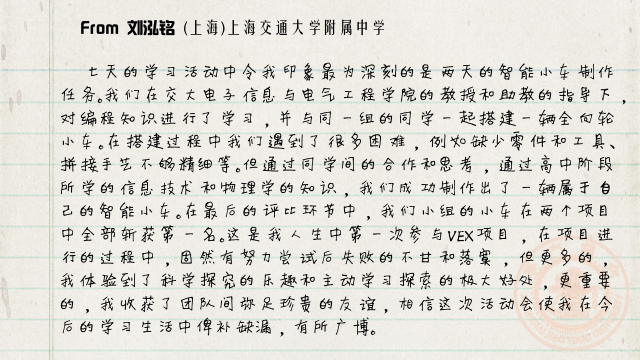 From 刘泓铭（上海）上海交通大学附属中学
七天的学习活动中令我印象最为深刻的是两天的智能小车制作
任务。我们在交大电子信息与电气工程学院的教授和助教的指导下，
对编程知识进行了学习，并与同一组的同学一起搭建一辆全向轮
小车。在搭建过程中我们遇到了很多困难，例如缺少零件和工具、
拼接手艺不够精细等。但通过同学间的合作和思考，通过高中阶段
所学的信息技术和物理学的知识，我们成功制作出了一辆属于自
己的智能小车。在最后的评比环节中，我们小组的小车在两个项目
中全部斩获第一名。这是我人生中第一次参与VEX项目，在项目进
行的过程中，固然有努力尝试后失败的不甘和落寞，但更多的，
我体验到了科学探究的乐趣和主动学习探索的极大好处，更重要
的，我收获了团队间弥足珍贵的友谊，相信这次活动会使我在今
后的学习生活中俾补缺漏，有所广博。